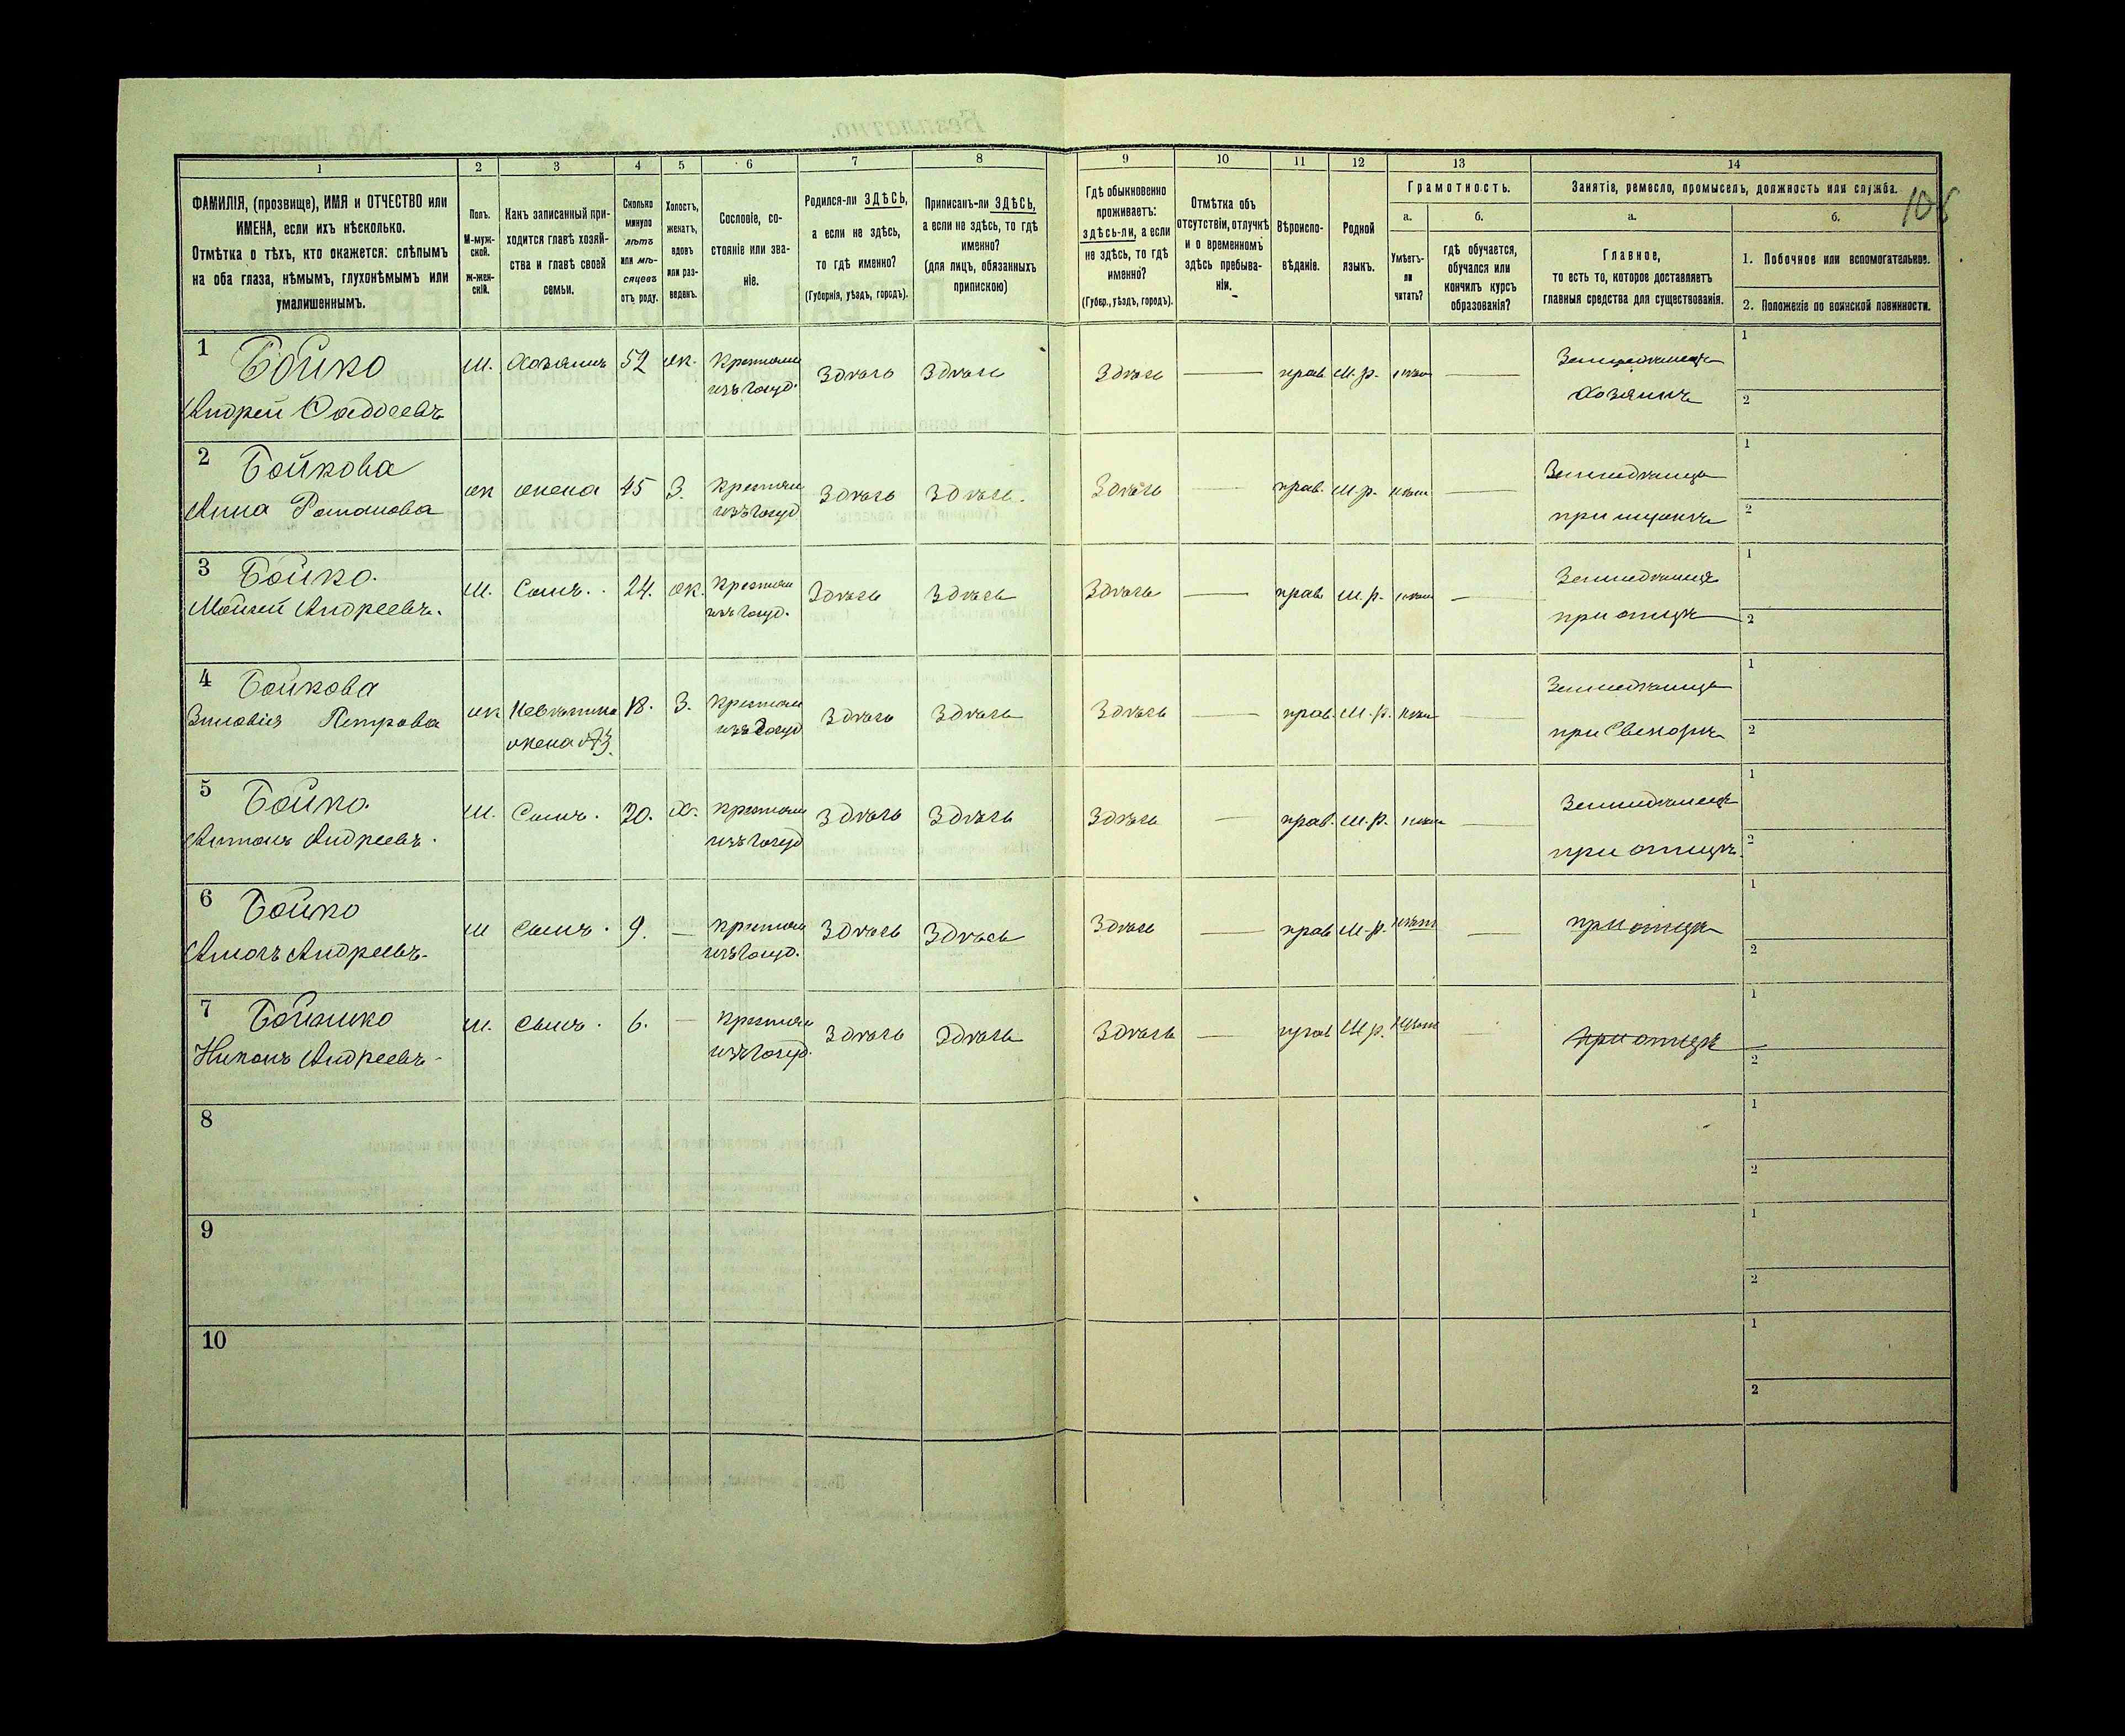 1
2
3
4
5
6
7
8
9
10
11
12
13
14
ФАМИЛІЯ, (прозвище), ИМЯ и ОТЧЕСТВО или
ИМЕНА, если ихъ нѣсколько.
Отмѣтка о тѣхъ, кто окажется: слѣпымъ
на оба глаза, нѣмымъ, глухонѣмымъ или
умалишеннымъ.
Полъ.
М-муж-
ской.
Ж-жен-
скій.
Какъ записанный при-
ходится главѣ хозяй-
ства и главѣ своей
семьи.
Сколько
минуло
лѣтъ
или мѣ-
сяцевъ
отъ роду.
Холостъ,
женатъ,
вдовъ
или раз-
веденъ.
Сословіе, со-
стояніе или зва-
ніе.
Родился-ли ЗДѢСЬ,
а если не здѣсь,
то гдѣ именно?
(Губернія, уѣздъ, городъ).
Приписанъ-ли ЗДѢСЬ,
а если не здѣсь, то гдѣ
именно?
(для лицъ, обязанныхъ
припискою)
Гдѣ обыкновенно
проживаетъ:
здѣсь-ли, а если
не здѣсь, то гдѣ
именно?
(Губер., уѣздъ, городъ).
Отмѣтка объ
отсутствіи, отлучкѣ
и о временномъ
здѣсь пребыва-
ніи.
Вѣроиспо-
вѣданіе.
Родной
языкъ.
Грамотность.
а.
Умѣетъ-
ли
читать?
б.
гдѣ обучается,
обучался или
кончилъ курсъ
образованія?
Занятіе, ремесло, промыселъ, должность или служба.
а.
Главное,
то есть то, которое доставляетъ
главныя средства для существованія.
б.
1. Побочное или вспомогательное.
2. Положеніе по воинской повинности.
1 Бойко
Андрей Фаддеевъ
м. Хозяинъ 52 ж. Крестьян
изъ госуд.
Здѣсь Здѣсь Здѣсь — прав. м.р. нѣт —
Земледѣлец
хозяинъ
1
2
2 Бойкова
Анна Романова
ж жена 45 З. Крестьян
изъ госуд
Здѣсь Здѣсь. Здѣсь — прав. м.р. нѣт —
Земледѣлица
при мужѣ
1
2
3 Бойко.
Мойсей Андреевъ.
м. Сынъ. 24. ж. Крестьян
изъ госуд.
Здѣсь Здѣсь Здѣсь — прав. м.р. нѣт —
Земледѣлец
при отцѣ
1
2
4 Бойкова
Зиновія Петрова
ж Невѣстка 18. З. Крестьян
жена №3.
изъ госуд
Здѣсь Здѣсь Здѣсь — прав. м.р. нѣт —
Земледѣлица
при Свекорѣ
1
2
5 Бойко.
Антонъ Андреевъ.
м. Сынъ. 20. х. Крестьян
изъ госуд
Здѣсь Здѣсь Здѣсь — прав. м.р. нѣт —
Земледѣлец
при отцѣ.
1
2
6 Бойко
Амосъ Андреевъ.
м Сынъ. 9. — Крестьян
изъ госуд.
Здѣсь Здѣсь Здѣсь — прав м.р. нѣт —
при отцѣ
1
2
7
Андреевъ.
м. Сынъ. 6. — Крестьян
изъ госуд.
Здѣсь Здѣсь Здѣсь — прав м.р. нѣт —
при отцѣ
1
2
8
1
2
9
1
2
10
1
2